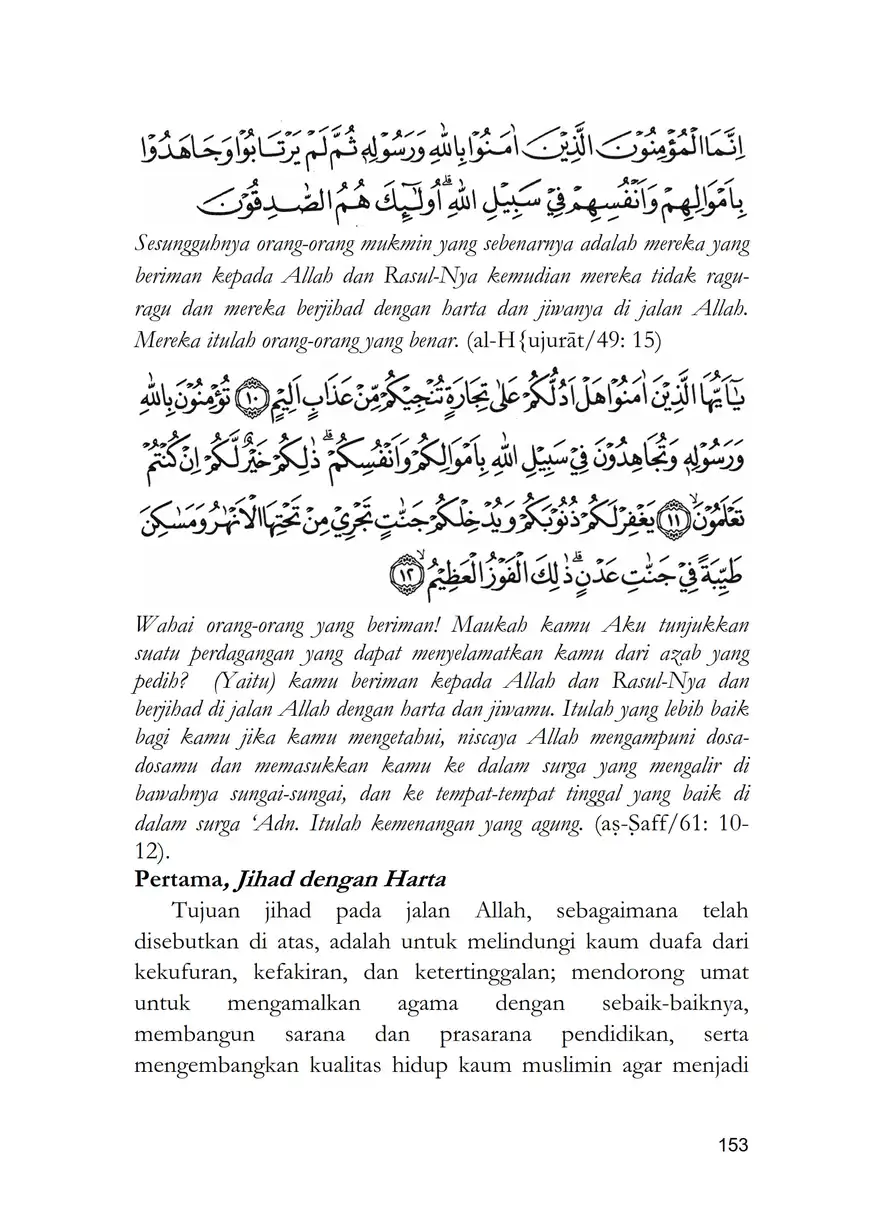 اِنَّمَا الْمُؤْمِنُوْنَ الَّذِيْنَ اٰمَنُوْا بِاللّٰهِ وَرَسُوْلِهٖ ثُمَّ لَمْ يَرْتَابُوْا وَجَاهَدُوْا
بِاَمْوَالِهِمْ وَاَنْفُسِهِمْ فِيْ سَبِيْلِ اللّٰهِ ۗ اُولٰۤىِٕكَ هُمُ الصّٰدِقُوْنَ
Sesungguhnya orang-orang mukmin yang sebenarnya adalah mereka yang
beriman kepada Allah dan Rasul-Nya kemudian mereka tidak ragu-
ragu dan mereka berjihad dengan harta dan jiwanya di jalan Allah.
Mereka itulah orang-orang yang benar. (al-H{ujurāt/49: 15)
يٰٓاَيُّهَا الَّذِيْنَ اٰمَنُوْا هَلْ اَدُلُّكُمْ عَلٰى تِجَارَةٍ تُنْجِيْكُمْ مِّنْ عَذَابٍ اَلِيْمٍ ١٠ تُؤْمِنُوْنَ بِاللّٰهِ
وَرَسُوْلِهٖ وَتُجَاهِدُوْنَ فِيْ سَبِيْلِ اللّٰهِ بِاَمْوَالِكُمْ وَاَنْفُسِكُمْ ۗ ذٰلِكُمْ خَيْرٌ لَّكُمْ اِنْ كُنْتُمْ
تَعْلَمُوْنَۙ ١١ يَغْفِرْ لَكُمْ ذُنُوْبَكُمْ وَيُدْخِلْكُمْ جَنّٰتٍ تَجْرِيْ مِنْ تَحْتِهَا الْاَنْهٰرُ وَمَسٰكِنَ
طَيِّبَةً فِيْ جَنّٰتِ عَدْنٍ ۗ ذٰلِكَ الْفَوْزُ الْعَظِيْمُۙ ١٢
Wahai orang-orang yang beriman! Maukah kamu Aku tunjukkan
suatu perdagangan yang dapat menyelamatkan kamu dari azab yang
pedih? (Yaitu) kamu beriman kepada Allah dan Rasul-Nya dan
berjihad di jalan Allah dengan harta dan jiwamu. Itulah yang lebih baik
bagi kamu jika kamu mengetahui, niscaya Allah mengampuni dosa-
dosamu dan memasukkan kamu ke dalam surga yang mengalir di
bawahnya sungai-sungai, dan ke tempat-tempat tinggal yang baik di
dalam surga ‘Adn. Itulah kemenangan yang agung. (aṣ-Ṣaff/61: 10-
12).
Pertama, Jihad dengan Harta
Tujuan jihad pada jalan Allah, sebagaimana telah
disebutkan di atas, adalah untuk melindungi kaum duafa dari
kekufuran, kefakiran, dan ketertinggalan; mendorong umat
untuk mengamalkan agama dengan sebaik-baiknya,
membangun sarana dan prasarana pendidikan, serta
mengembangkan kualitas hidup kaum muslimin agar menjadi
153